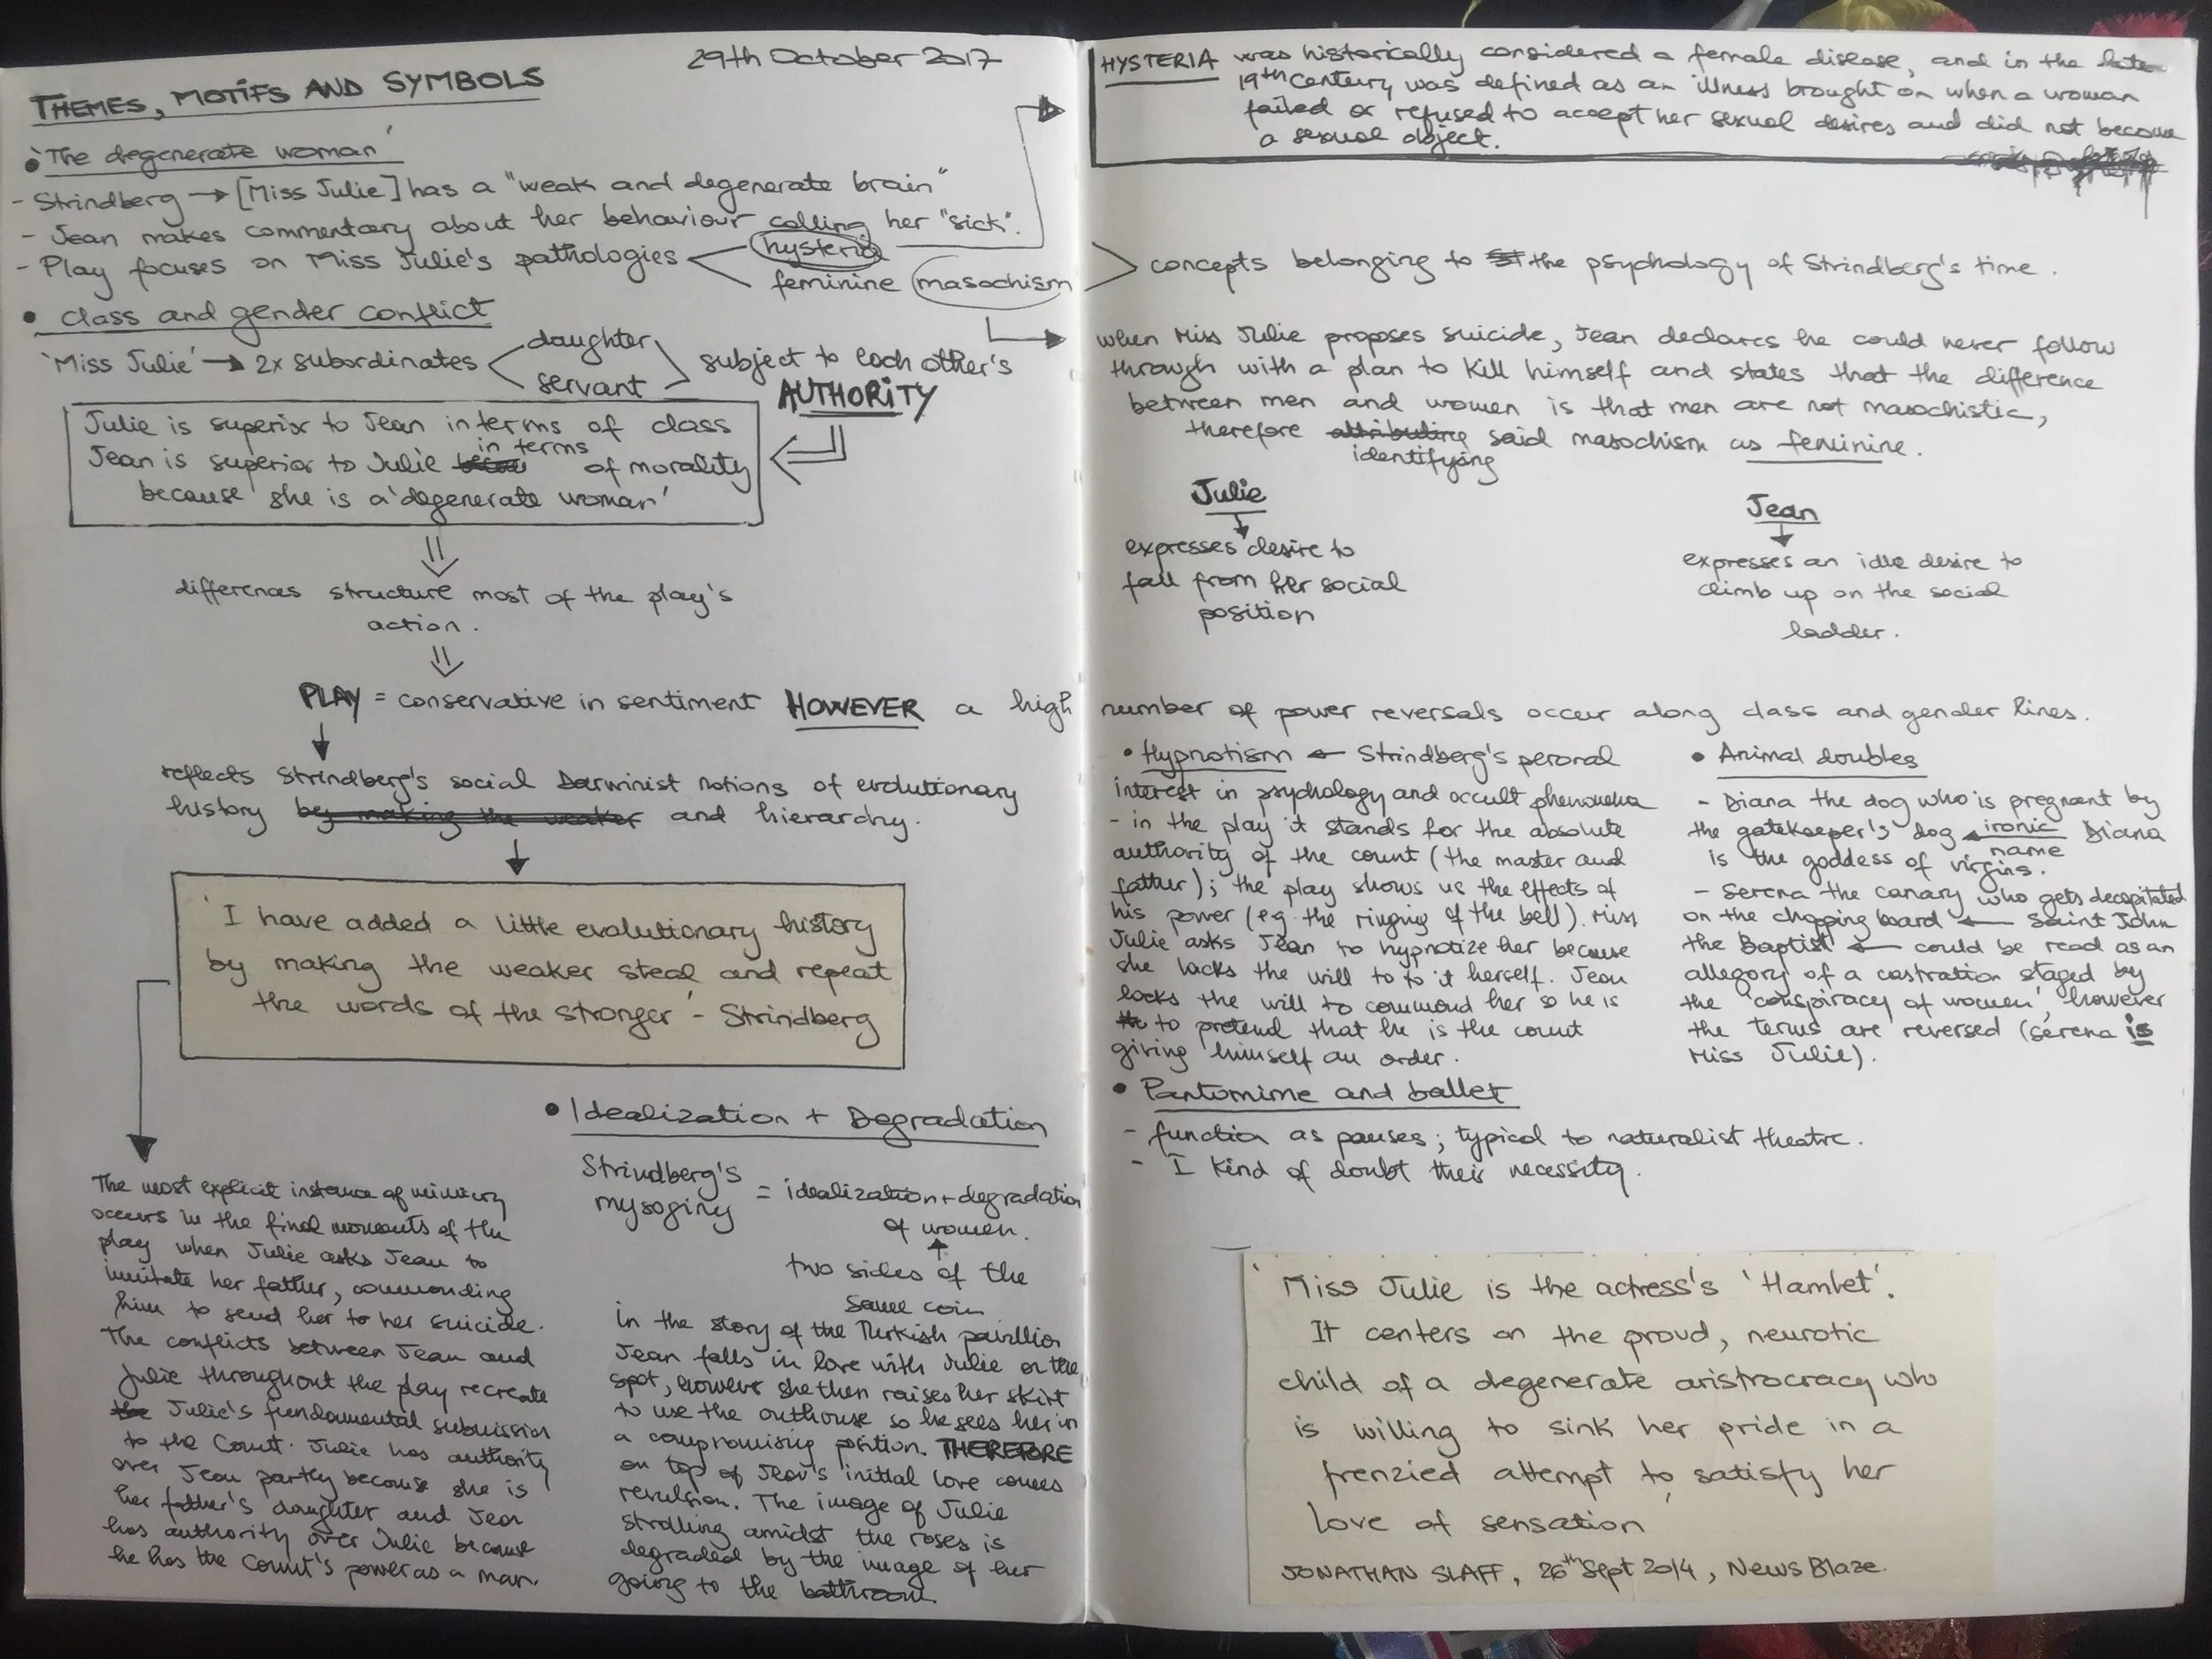 29th October 2017
THEMES, MOTIFS AND SYMBOLS
• 'The degenerate woman'
- Strindberg → [Miss Julie] has a "weak and degenerate brain"
- Jean makes commentary about her behaviour calling her "sick".
- Play focuses on Miss Julie's pathologies
hysteria
feminine masochism
• class and gender conflict
'Miss Julie' → 2x subordinates
daughter
servant
subject to each other's
AUTHORITY
Julie is superior to Jean in terms of class
Jean is superior to Julie in terms of morality
because she is a 'degenerate woman'
differences structure most of the play's
action.
PLAY = conservative in sentiment HOWEVER a high number of power reversals occur along class and gender lines.
reflects Strindberg's social Darwinist notions of evolutionary
history by making the weaker and hierarchy.
'I have added a little evolutionary history
by making the weaker steal and repeat
the words of the stronger' - Strindberg
The most explicit instance of mimicry
occurs in the final moments of the
play when Julie asks Jean to
imitate her father, commanding
him to send her to her suicide.
The conflicts between Jean and
Julie throughout the play recreate
the Julie's fundamental submission
to the Count. Julie has authority
over Jean partly because she is
her father's daughter and Jean
has authority over Julie because
he has the Count's power as a man.
• Idealization + Degradation
Strindberg's
mysoginy
= idealization + degradation
of women.
two sides of the
same coin
In the story of the Turkish pavillion
Jean falls in love with Julie on the
spot, however she then raises her skirt
to use the outhouse so he sees her in
a compromising position. THEREFORE
on top of Jean's initial love comes
revulsion. The image of Julie
strolling amidst the roses is
degraded by the image of her
going to the bathroom.
HYSTERIA was historically considered a female disease, and in the late
19th Century was defined as an illness brought on when a woman
failed or refused to accept her sexual desires and did not become
a sexual object.
concepts belonging to the psychology of Strindberg's time.
when Miss Julie proposes suicide, Jean declares he could never follow
through with a plan to kill himself and states that the difference
between men and women is that men are not masochistic,
therefore attributing identifying said masochism as feminine.
Julie
expresses desire to
fall from her social
position
Jean
expresses an idle desire to
climb up on the social
ladder.
• Hypnotism ← Strindberg's peronal
interest in psychology and occult phenomena
- in the play it stands for the absolute
authority of the count (the master and
father); the play shows us the effects of
his power (eg. the ringing of the bell). Miss
Julie asks Jean to hypnotize her because
she lacks the will to to it herself. Jean
lacks the will to command her so he is
to pretend that he is the count
giving himself an order.
• Animal doubles
- Diana the dog who is pregnant by
the gatekeeper's dog ← ironic name Diana
is the goddess of virgins.
- Serena the canary who gets decapitated
on the chopping board ← Saint John
the Baptist ← could be read as an
allegory of a castration staged by
the 'conspiracy of women', however
the terms are reversed (serena is
Miss Julie).
• Pantomime and ballet
- function as pauses; typical to naturalist theatre.
- I kind of doubt their necessity.
'Miss Julie is the actress's 'Hamlet'.
It centers on the proud, neurotic
child of a degenerate aristrocracy who
is willing to sink her pride in a
frenzied attempt to satisfy her
love of sensation'
JONATHAN SLAFF, 26th Sept 2014, News Blaze.